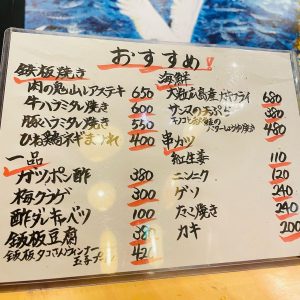 おすすめ!
鉄板焼き
肉の鬼山レアステーキ 650
牛ハラミタレ焼き 600
豚ハラミタレ焼き 550
ひね鶏ネギまみれ 400
一品
ガツポン酢 380
梅クラゲ 300
酢ダレキャベツ 100
鉄板豆腐 380
鉄板タコさんウィンナー 玉子プラス 420
海鮮
大粒広島産カキフライ 680
サンマの 380
キノコと鮭のバターしょうゆ焼き 480
串カツ
紅生姜 110
ニンニク 120
ゲソ 240
たこ焼き 240
カキ 200